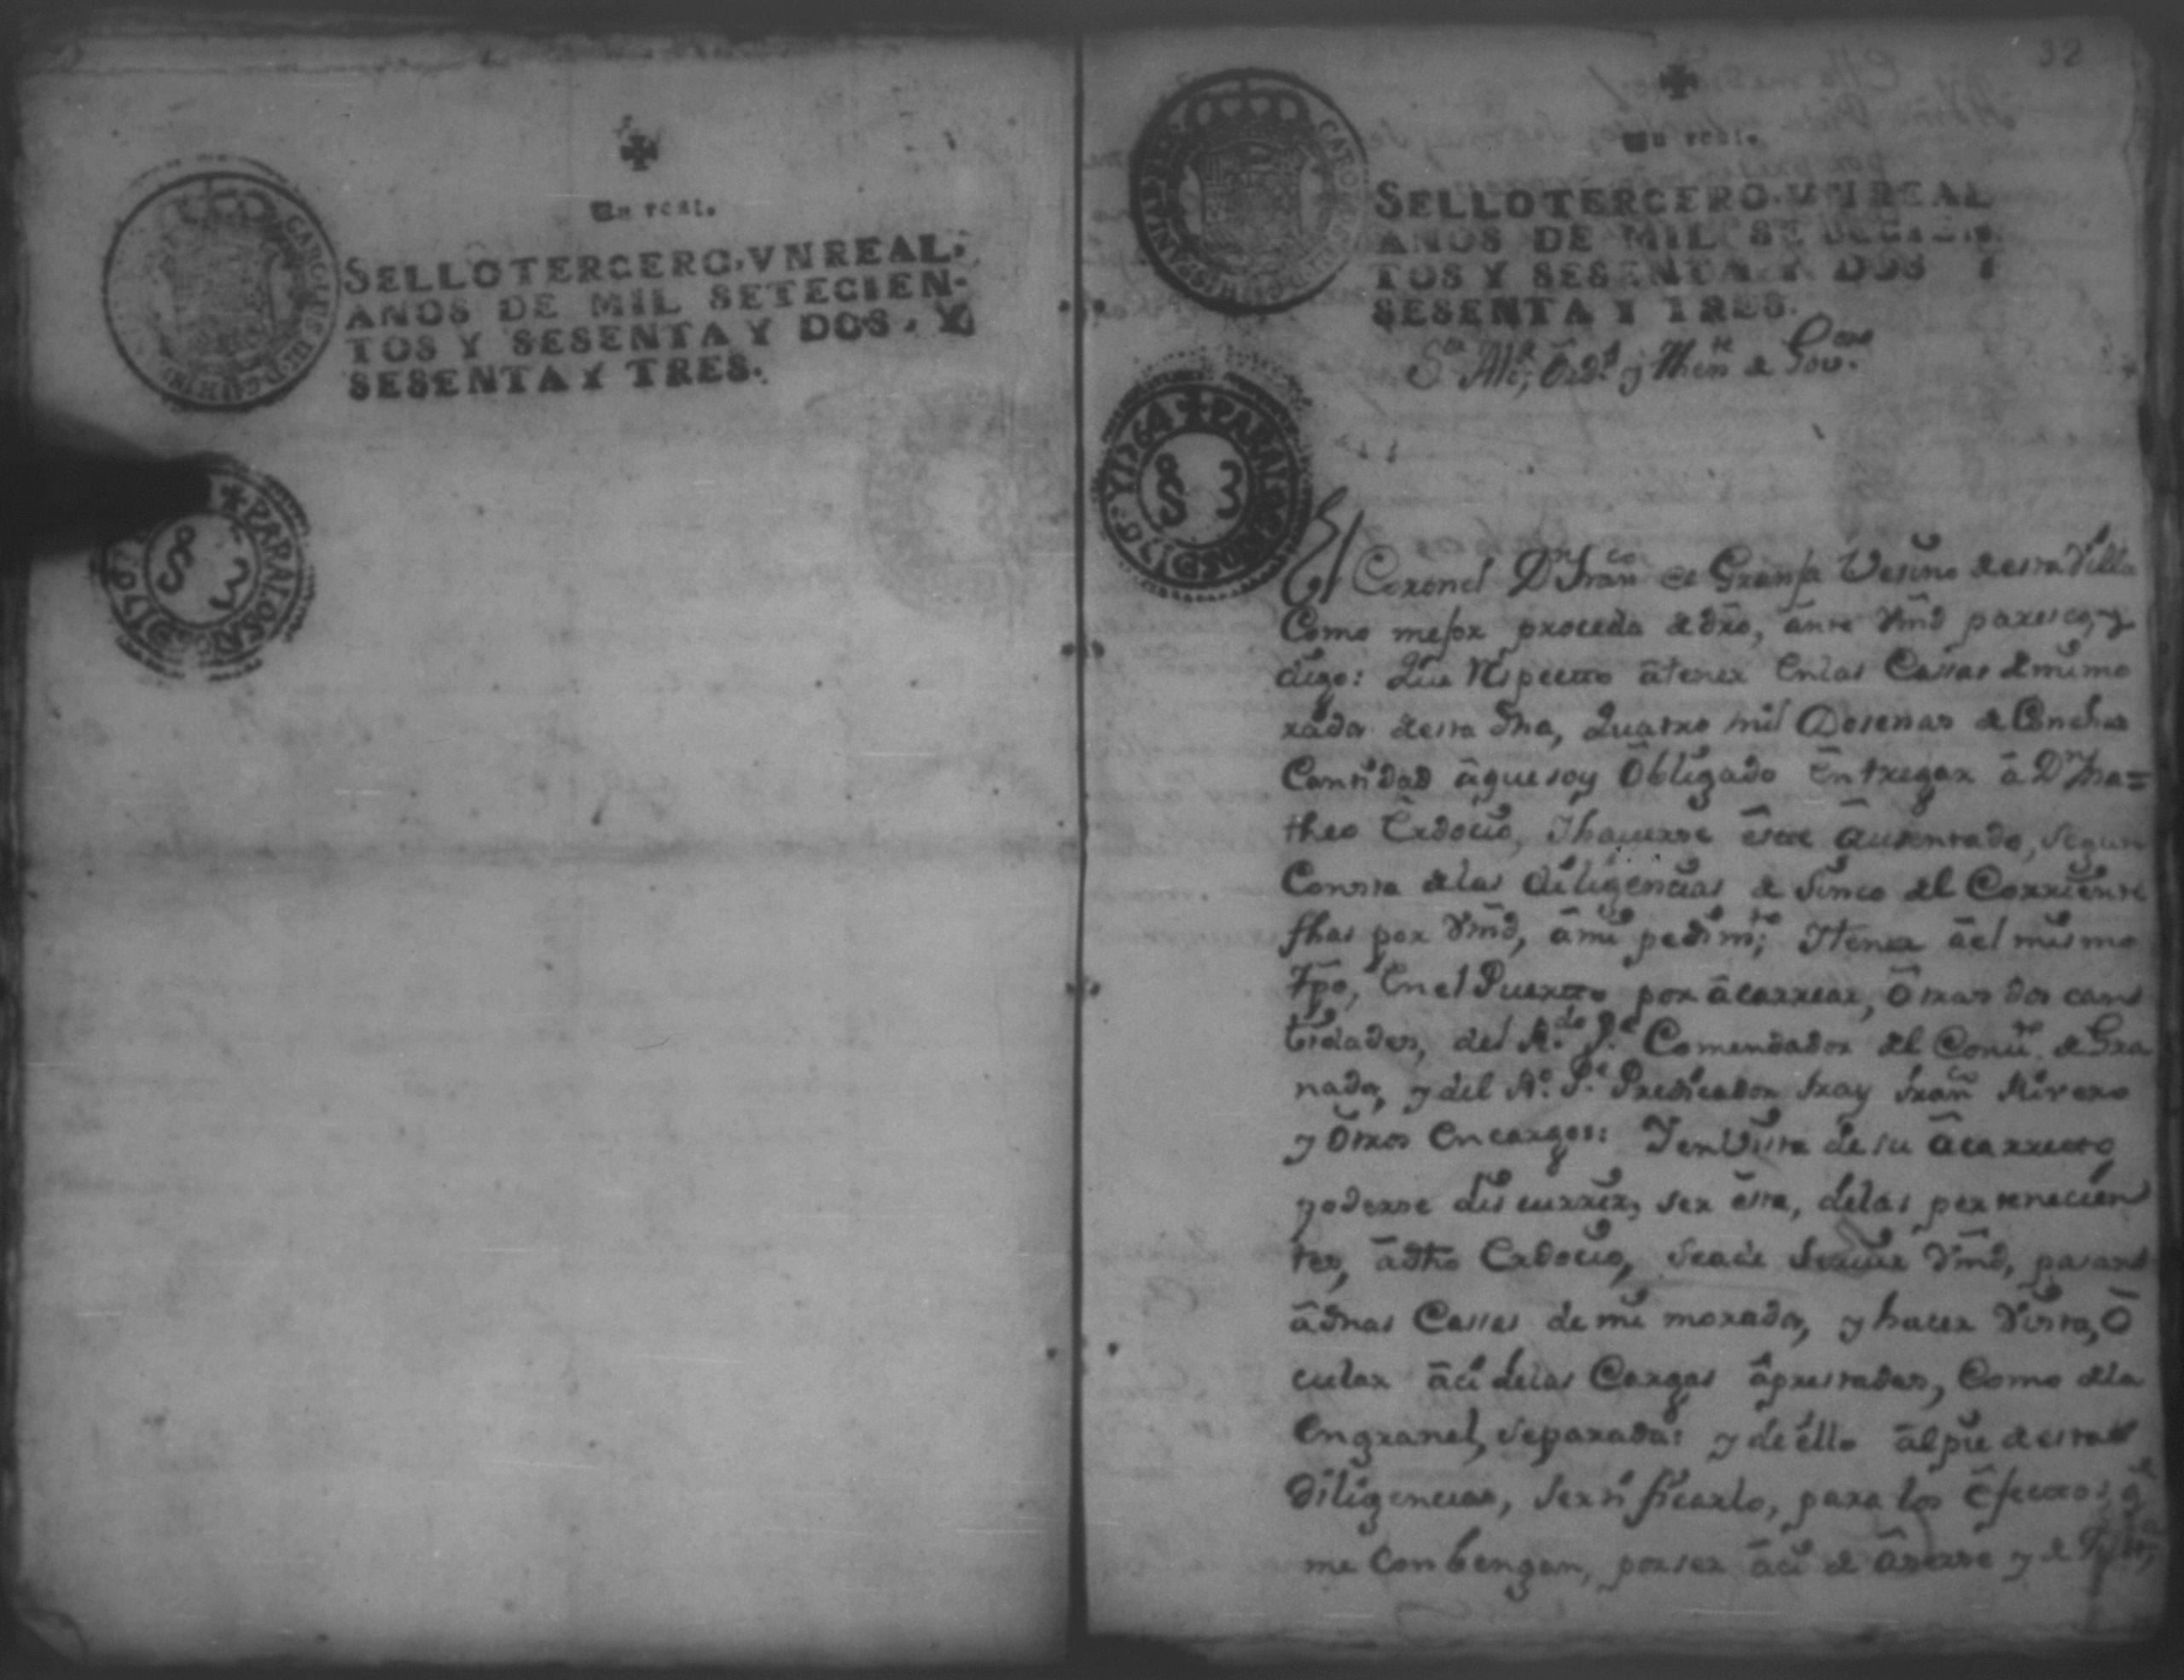 Un real.
SELLO TERCERO, VN REAL,
AÑOS DE MIL SETECIEN-
TOS Y SESENTA Y DOS, Y
SESENTA Y TRES.
PARALOS
32
Un real.
SELLO TERCERO. VN REAL
AÑOS DE MIL SETECIEN
TOS Y SESENTA Y DOS Y
SESENTA Y TRES.
Sor Alce Ordo y Thene de Govor
Y1764 PARALOS
El Coronel Dn Franco de Granja Vesino desta Villa
Como mejor proceda de dro, ante Vmd paresco, y
digo: Que Respecto a tener en las Cassas de mi mo
rada desta dha, Quatro mil Dosenas de Conchas
Cantidad a que soy Obligado Entregar a Dn Ma=
theo Erdocio, Y haverse este ausentado, segun
Consta de las diligencias de Sinco del Corriente
fhas por Vmd, a mi pedimto; Y tener a el mismo
tpo, En el Puerto por acarrear, Otras dos can
tidades, del Rdo Pe Comendador del Convto de Gra
nada, y del Ro Pe Predicador Fray Franco Rivero
y Otros Encargos: Y en Vista de su acarreto
poderse discurrir, ser esta, delas pertenecien
tes, a dho Erdocio, se ade servir Vmd, pasar
a dhas Casses de mi morada, y hacer Vista, O
cular aci delas Cargas aprestadas, Como dela
Engranel, separada: y de ello al pie destas
diligencias, sertificarlo, para los Efectos, qe
me Conbengan, por ser aci de